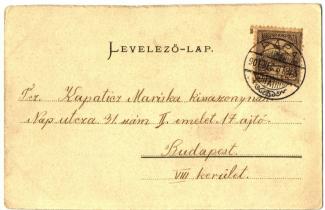 LEVELEZŐ-LAP.
Kapaticz Mariska kisasszonynak
Nap utcza 31. szám II. emelet 17 ajtó.
Budapest.
VIII. kerület.